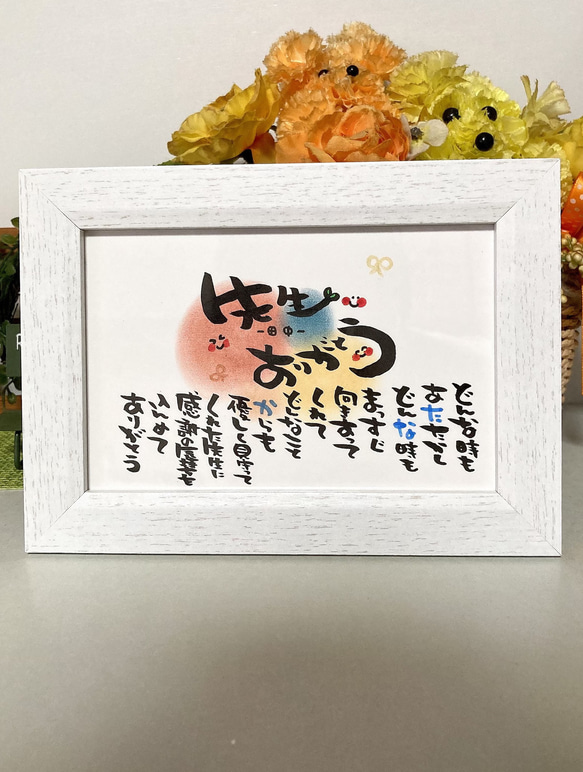 先生
-田中-
ありがとう
どんな時も
あたたかく
どんな時も
まっすぐ
向きあって
くれて
どんなこと
からも
優しく見守って
くれた先生に
感謝の
こめて
ありがとう